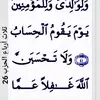 وَلِوَٰلِدَىَّ وَلِلْمُؤْمِنِينَ
يَوْمَ يَقُومُ ٱلْحِسَابُ
٤١ وَلَا تَحْسَبَنَّ
ٱللَّهَ غَـٰفِلًا عَمَّا
ثلاثة أرباع الحزب 26